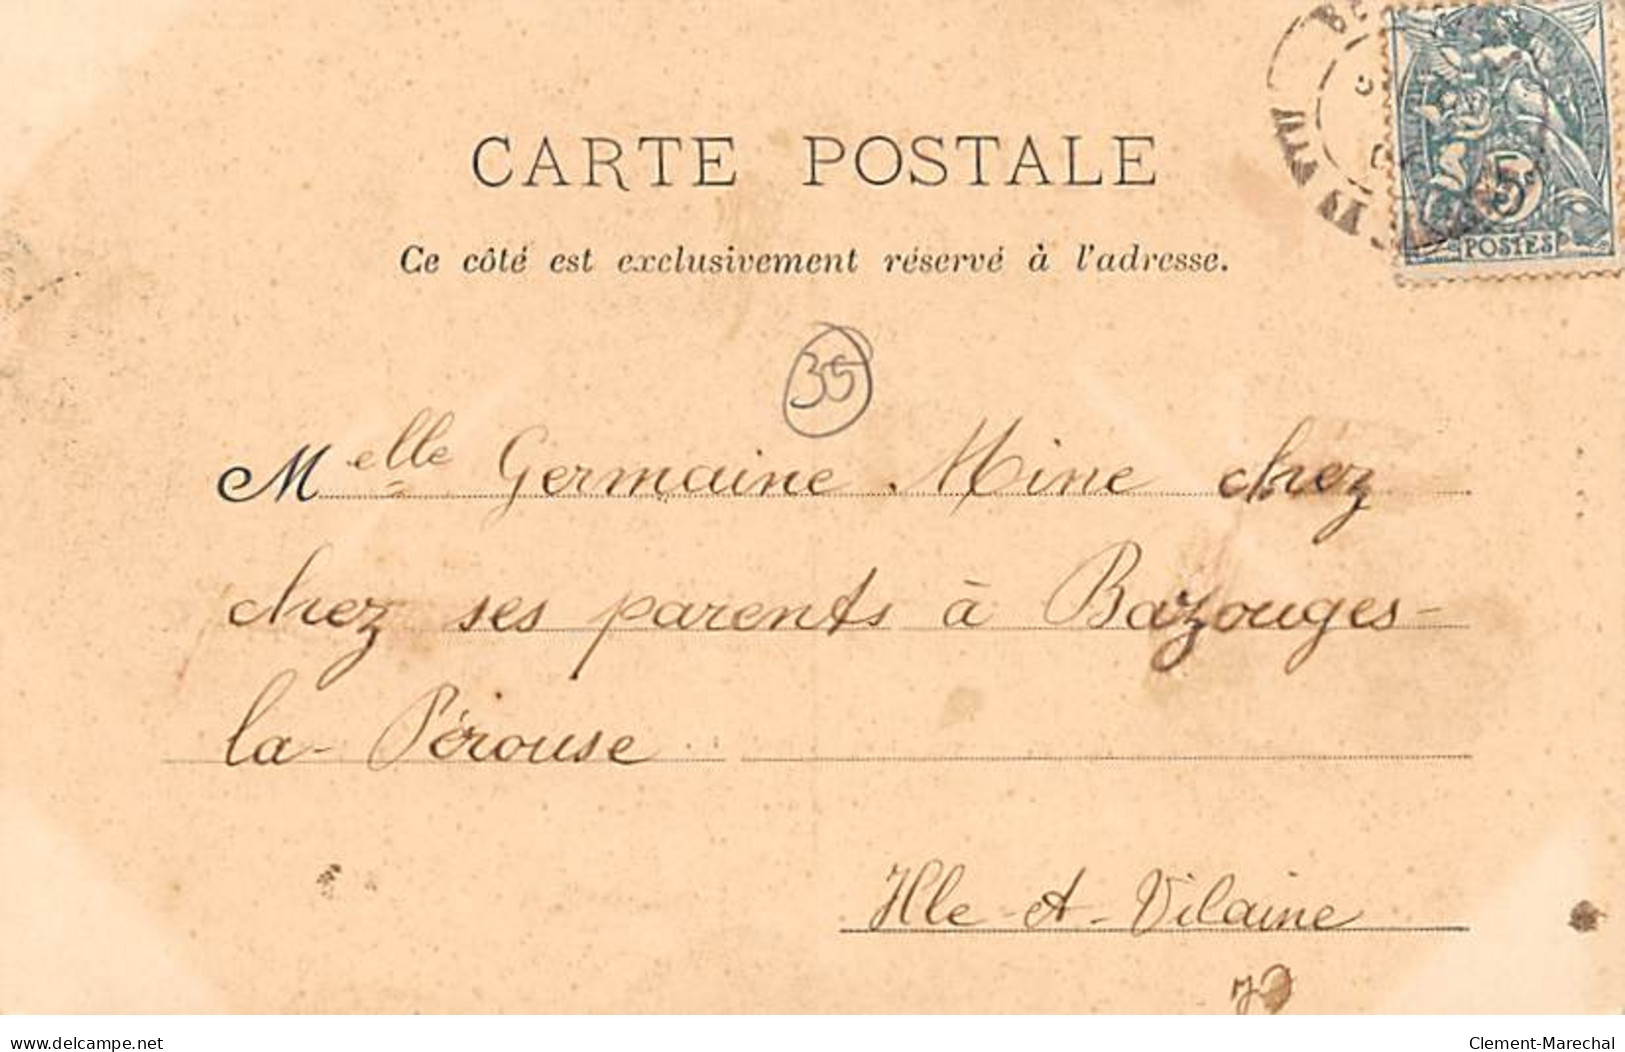 CARTE POSTALE
Ce côté est exclusivement réservé à l'adresse.
5
POSTES
35
Melle Germaine Mine chez
chez ses parents à Bazouges-
la-Pérouse
Ille-et-Vilaine
delcampe.net
Clement-Marechal